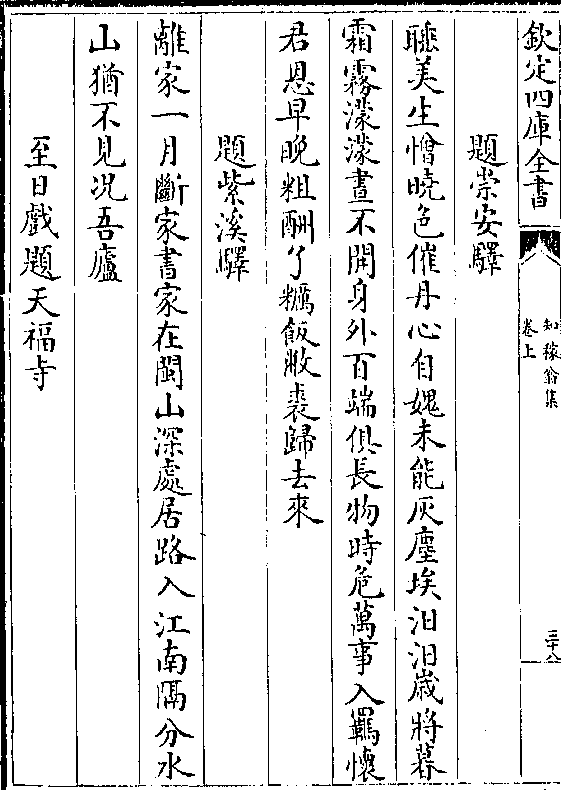 欽定四庫全書
知稼翁集
卷上
三十八
題崇安驛
聽美生憎曉色催丹心自媿未能灰塵埃汩汩歲將暮
霜霧濛濛晝不開身外百端俱長物時危萬事入羈懷
君恩早晚粗酬了糲飯敝裘歸去來
題紫溪驛
離家一月斷家書家在閩山深處居路入江南隔分水
山猶不見况吾廬
至日戲題天福寺